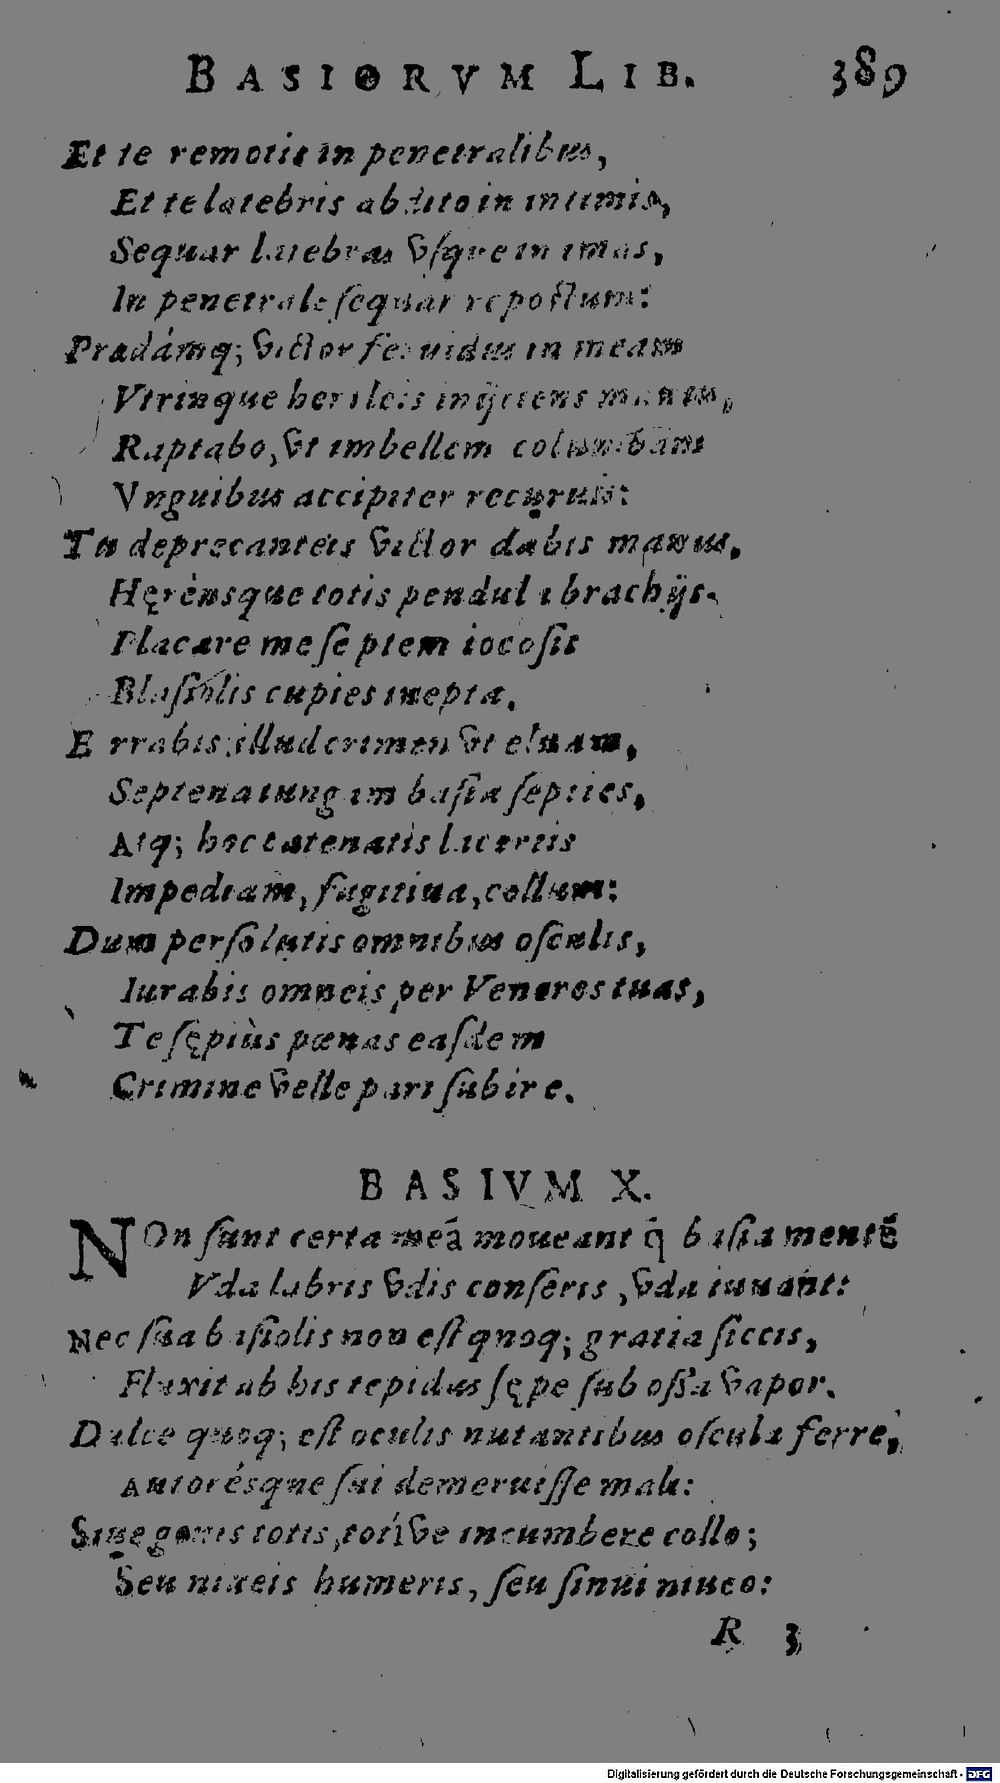 BASIORVM LIB. 389
Et te remotis in penetralibus,
Et te latebris abdito in intimis,
Sequar latebras vſque in imas,
In penetrale ſequar repoſtum:
Prædámq; victor feruidus in meam
Vtrinque herileis inijciens manus,
Raptabo, vt imbellem columbam
Vnguibus accipiter recuruis:
Tu deprecanteis victor dabis manus,
Hęrénsque totis pendula brachijs.
Placare me ſeptem iocoſis
Blaſiolis cupies inepta.
Errabis: illud crimen vt eluam,
Septena iungam baſia ſepties,
Atq; hoc catenatis lacertis
Impediam, fugitiua, collum:
Dum perſolutis omnibus oſculis,
Iurabis omneis per Veneres tuas,
Te ſępiùs pœnas eaſdem
Crimine velle pari ſubire.
BASIVM X.
NOn ſunt certa meã moueant q̃ baſia mentẽ
Vda labris vdis conſeris, vda iuuant:
Nec ſua baſiolis non eſt quoq; gratia ſiccis,
Fluxit ab his tepidus ſępe ſub oſſa vapor.
Dulce quoq; eſt oculis nutantibus oſcula ferre,
Autorésque ſui demeruiſſe mali:
Siue genis totis, totíve incumbere collo;
Seu niueis humeris, ſeu ſinui niueo:
R 3
Digitalisierung gefördert durch die Deutsche Forschungsgemeinschaft - DFG